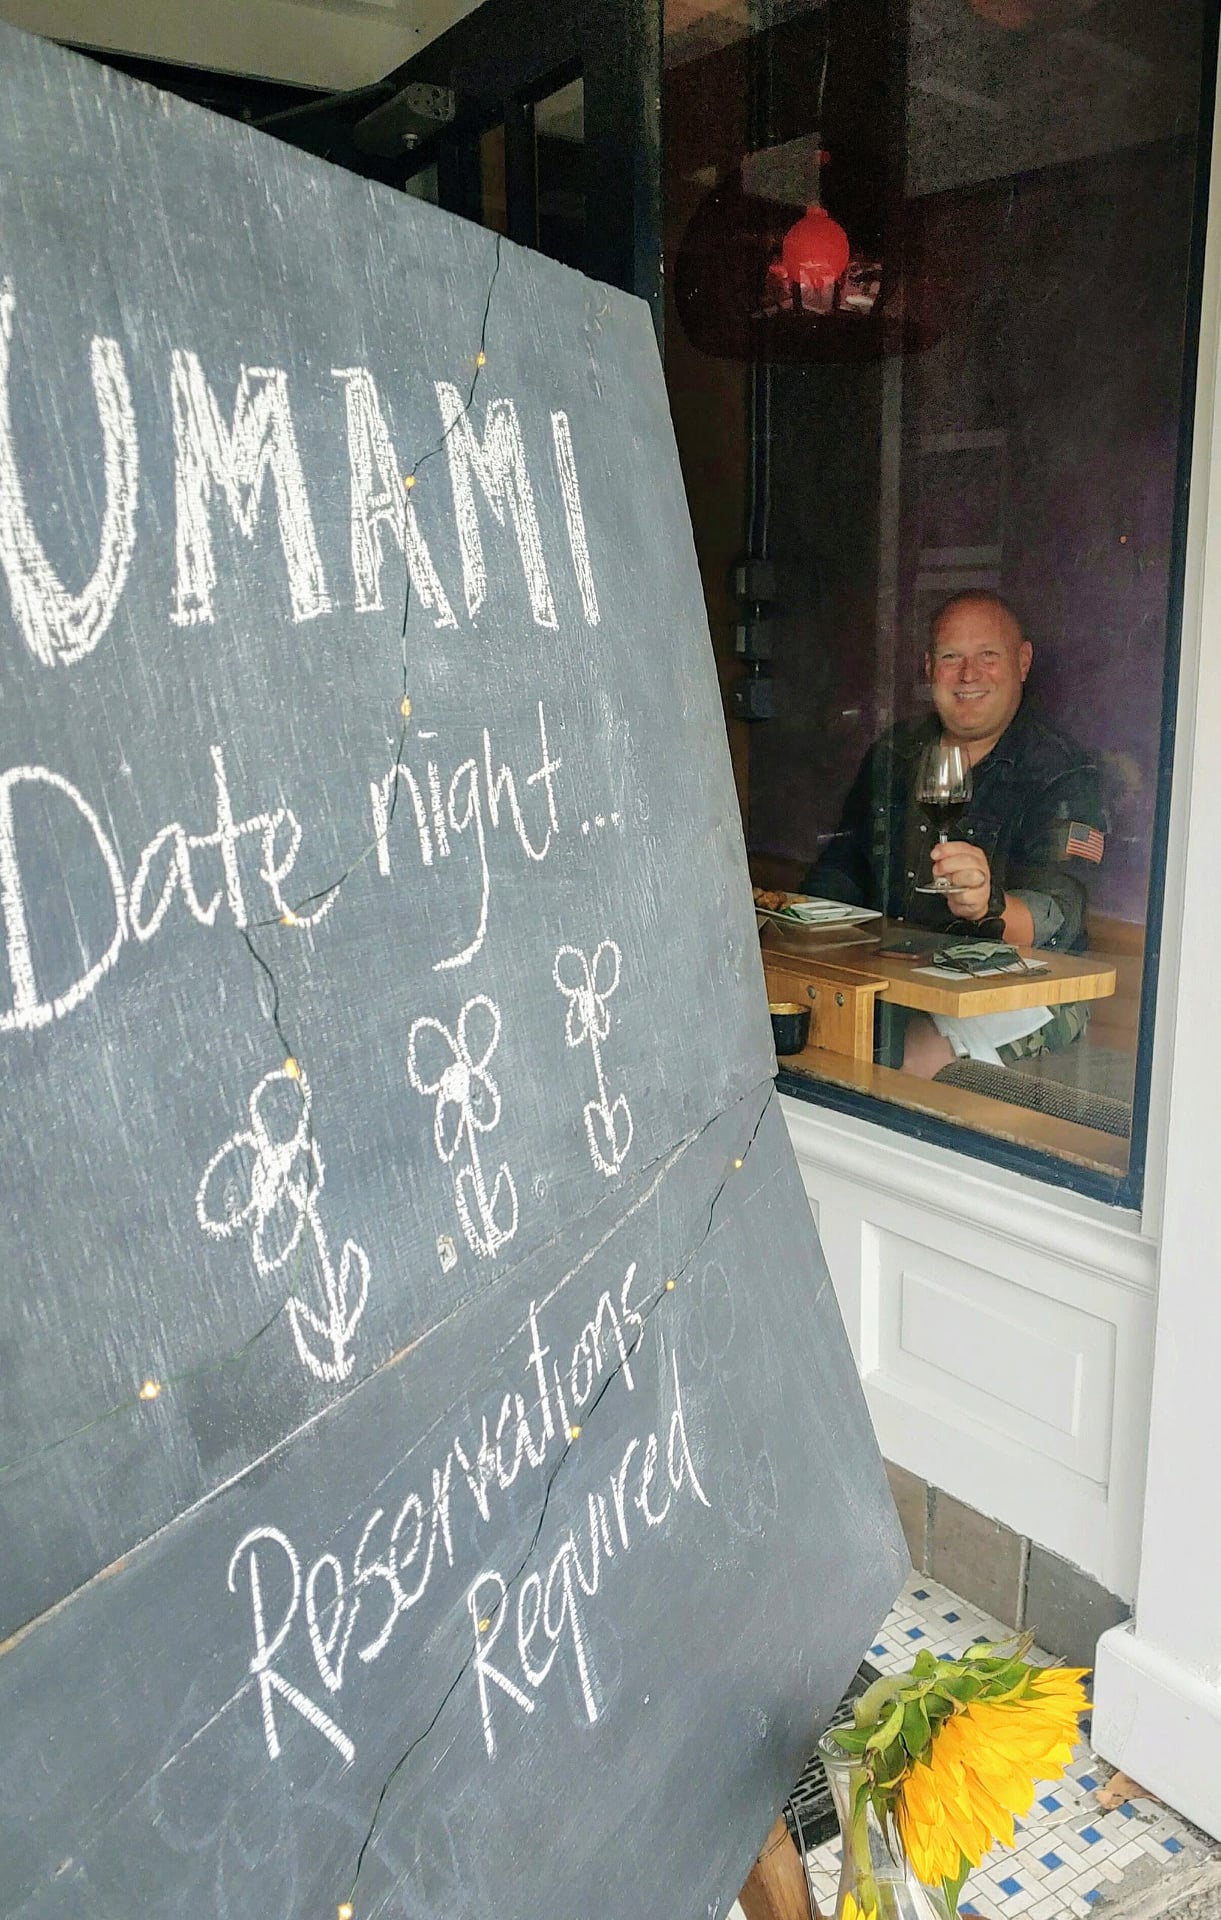 UMAMI
Date night...
Reservations
Required